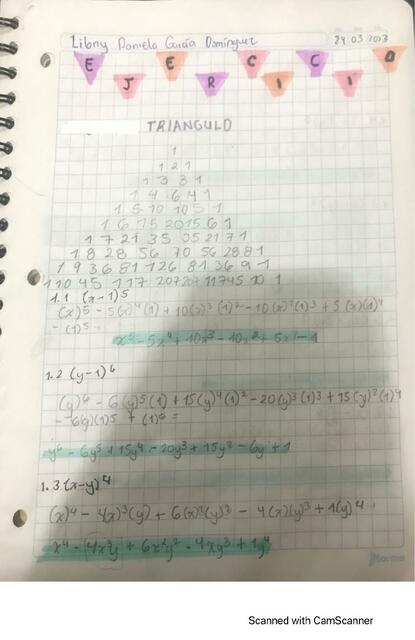 Libny Daniela García Domínguez 24.03.2023
E J E R C I C I O
TRIANGULO
1
1 2 1
1 3 3 1
1 4 6 4 1
1 5 10 10 5 1
1 6 15 20 15 6 1
1 7 21 35 35 21 7 1
1 8 28 56 70 56 28 8 1
1 9 36 81 126 81 36 9 1
1 10 45 117 207 207 117 45 10 1
1.1 (x-1)⁵
(x)⁵ - 5(x)⁴(1) + 10(x)³(1)² - 10(x)²(1)³ + 5(x)(1)⁴
- (1)⁵ =
x⁵ - 5x⁴ + 10x³ - 10x² + 5x - 1
1.2 (y-1)⁶
(y)⁶ - 6(y)⁵(1) + 15(y)⁴(1)² - 20(y)³(1)³ + 15(y)²(1)⁴
- 6(y)(1)⁵ + (1)⁶ =
y⁶ - 6y⁵ + 15y⁴ - 20y³ + 15y² - 6y + 1
1.3 (x-y)⁴
(x)⁴ - 4(x)³(y) + 6(x)²(y)² - 4(x)(y)³ + 1(y)⁴
x⁴ - 4x³y + 6x²y² - 4xy³ + 1y⁴
Norma
Scanned with CamScanner